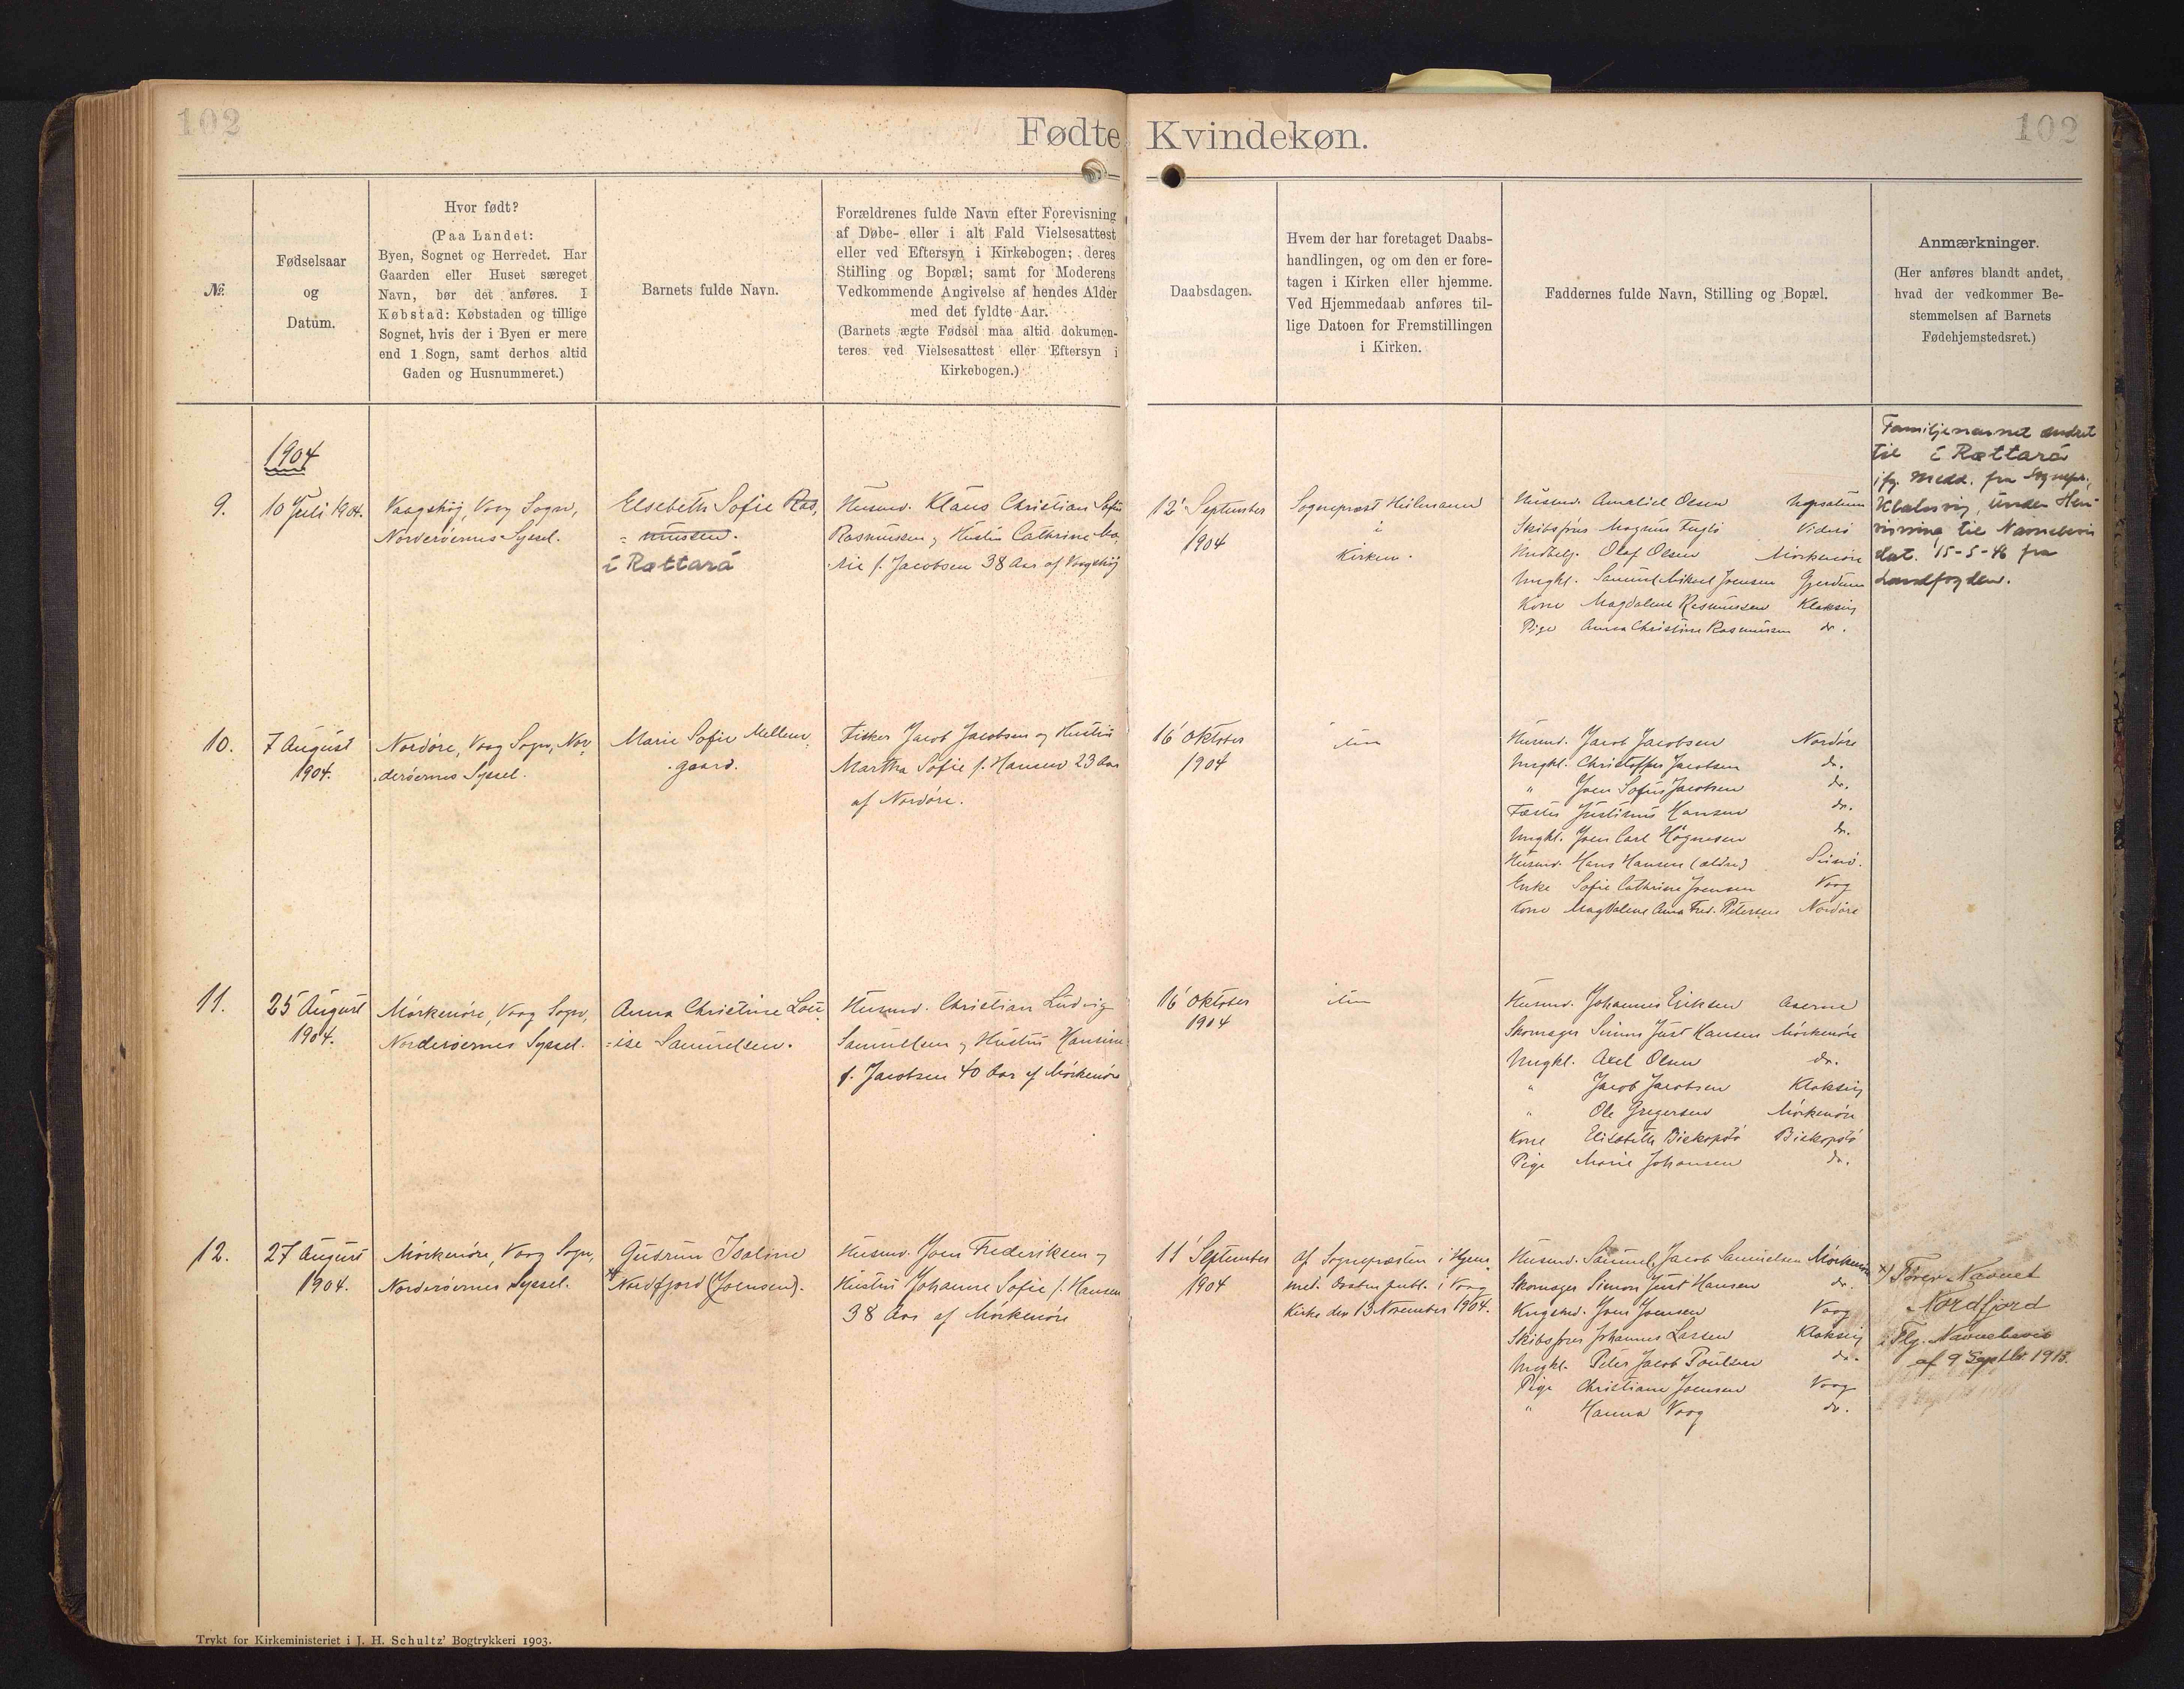 102
Fødte Kvindekøn.
102
№.
Fødselsaar
og
Datum.
Hvor født?
(Paa Landet:
Byen, Sognet og Herredet. Har
Gaarden eller Huset særeget
Navn, bør det anføres. I
Købstad: Købstaden og tillige
Sognet, hvis der i Byen er mere
end 1 Sogn, samt derhos altid
Gaden og Husnummeret.)
Barnets fulde Navn.
Forældrenes fulde Navn efter Forevisning
af Døbe- eller i alt Fald Vielsesattest
eller ved Eftersyn i Kirkebogen; deres
Stilling og Bopæl; samt for Moderens
Vedkommende Angivelse af hendes Alder
med det fyldte Aar.
(Barnets ægte Fødsel maa altid dokumen-
teres ved Vielsesattest eller Eftersyn i
Kirkebogen.)
Daabsdagen.
Hvem der har foretaget Daabs-
handlingen, og om den er fore-
tagen i Kirken eller hjemme.
Ved Hjemmedaab anføres til-
lige Datoen for Fremstillingen
i Kirken.
Faddernes fulde Navn, Stilling og Bopæl.
Anmærkninger.
(Her anføres blandt andet,
hvad der vedkommer Be-
stemmelsen af Barnets
Fødehjemstedsret.)
1904
9.
10 Juli 1904.
Vaagshöj, Vaag Sogn,
Norderøernes Syssel.
Elsebeth Sofie Ras,
= mussen.
í Rættará
Husmd. Klaus Christian Sofus
Rasmussen og Hustru Cathrine Ma,
rie f. Jacobsen 38 Aar af Vaagshöj
12' September
1904
Sognepræst Heilmann
i
Kirken.
Husmd. Amaliel Olsen
Skibsförer Magnus Fuglö Viderö
Olaf Olsen Mørkenøre
Ungkl. Samuel Mikael Joensen
Kone Magdalene Rasmussen Klaksvig
Pige Anna Christine Rasmussen do.
Familjenavnet ændret
til í Rættará
ifg. Medd. fra Sognepr.,
Klaksvig, under Hen-
visning til Navnebevis
dat. 15-5-46 fra
Landfogden.
10.
7 August
1904.
Nordøre, Vaag Sogn, Nor
derøernes Syssel.
Marie Sofie Mellem,
gaard.
Fisker Jacob Jacobsen og Hustru
Martha Sofie f. Hansen 23 Aar
af Nordøre.
16' Oktober
1904
item
Husmd. Jacob Jacobsen Nordøre
Ungkl. Christoffer Jacobsen do.
" Joen Sofus Jacobsen do.
Fæster Justinus Hansen do.
Ungkl. Joen Carl Högnesen do.
Husmd. Hans Hansen (ældre)
Enke Sofie Cathrine Joensen Vaag
Kone Magdalene Anna Fred. Petersen Nordøre
11.
25' August
1904.
Mørkenøre, Vaag Sogn,
Norderøernes Syssel.
Anna Christine Lou,
= ise Samuelsen.
Husmd. Christian Ludvig
Samuelsen og Hustru Hansine
f. Jacobsen 40 Aar af Mørkenøre
16' Oktober
1904
item
Husmd. Johannes Eriksen
Skomager Simon Just Hansen Mørkenøre
Ungkl. Axel Olsen do.
" Jacob Jacobsen Klaksvig
" Ole Gregersen Mørkenøre
Kone Elisabeth Biskopstö Biskopstö
Pige Marie Johansen do.
12.
27 August
1904.
Mørkenøre, Vaag Sogn,
Norderøernes Syssel.
Gudrun Isaline
x) Nordfjord (Joensen).
Husmd. Joen Frederiksen og
Hustru Johanne Sofie f. Hansen
38 Aar af Mørkenøre
11' September
1904
af Sognepræsten i Hjem,
met. Daaben publ. i Vaag
Kirke den 13 November 1904.
Husmd. Samuel Jacob Samuelsen Mørkenøre
Skomager Simon Just Hansen do.
Joen Joensen Vaag
Skibsförer Johannes Larsen Klaksvig
Ungkl. Peter Jacob Poulsen do.
Pige Christiane Joensen Vaag
" Hanna Vaag do.
x) Fører Navnet
Nordfjord
Flg. Navnebevis
af 9 Septbr. 1913.
Trykt for Kirkeministeriet i J. H. Schultz' Bogtrykkeri 1903.